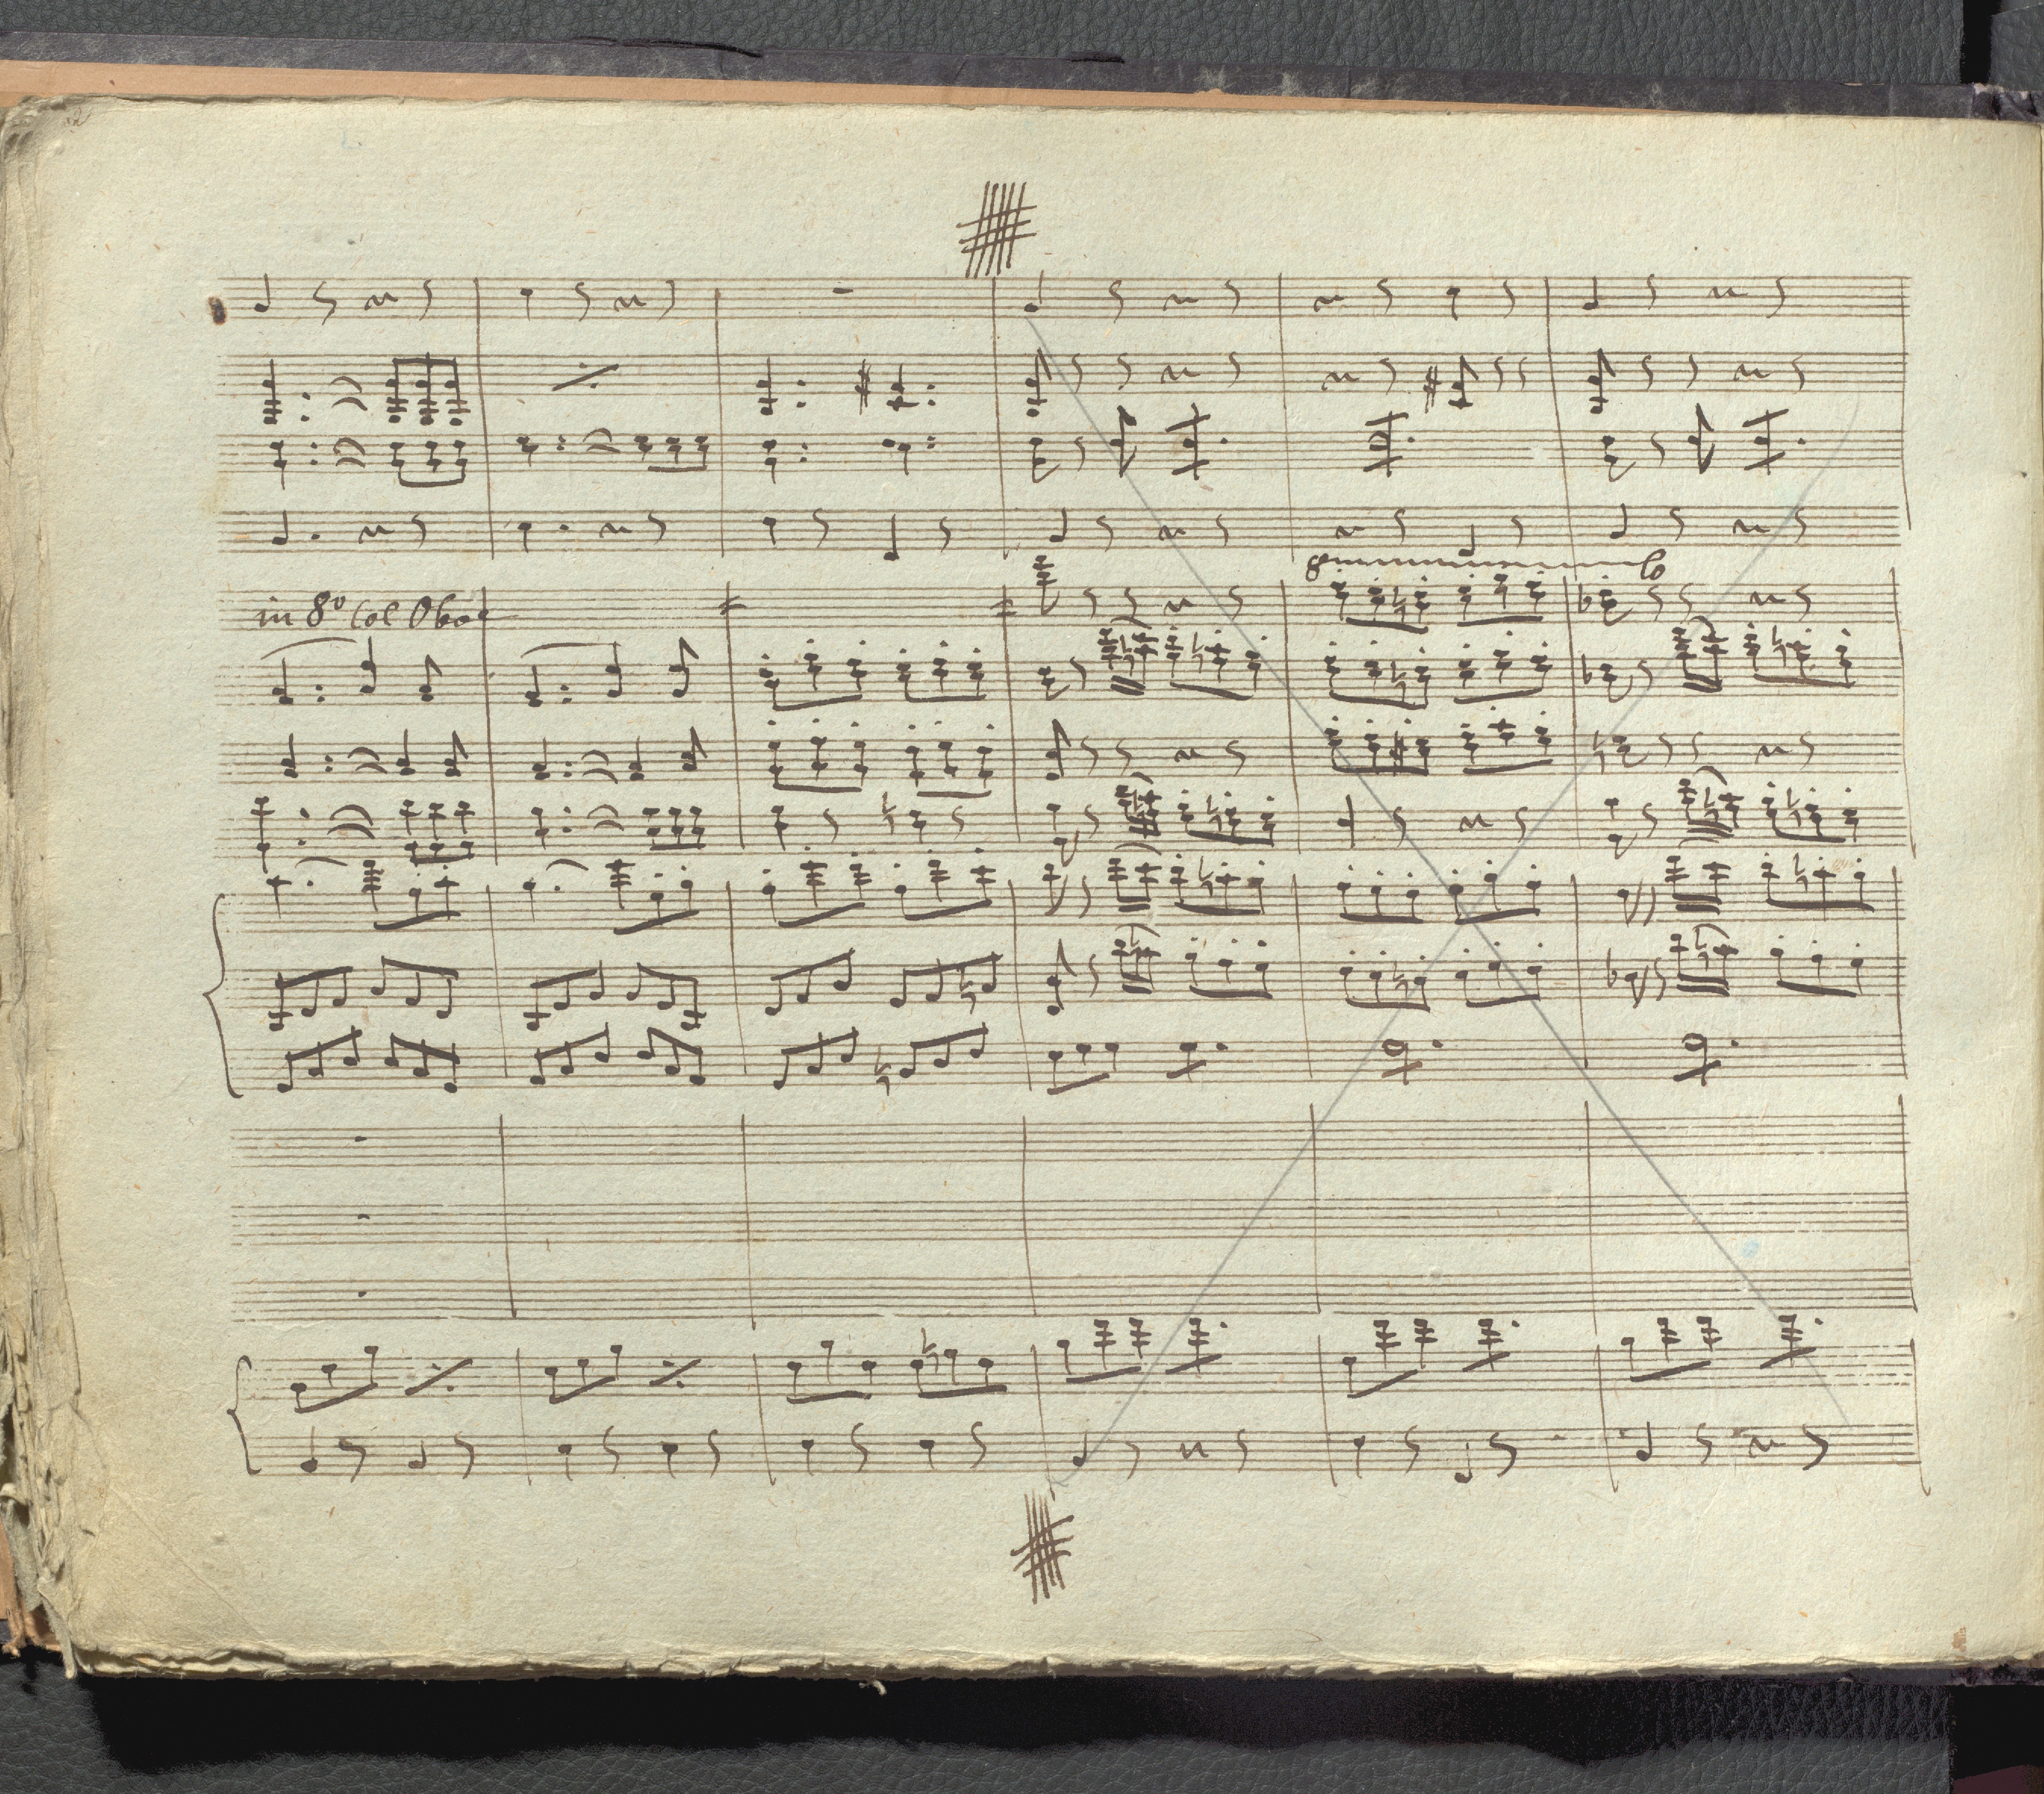 in 8º Col Oboe